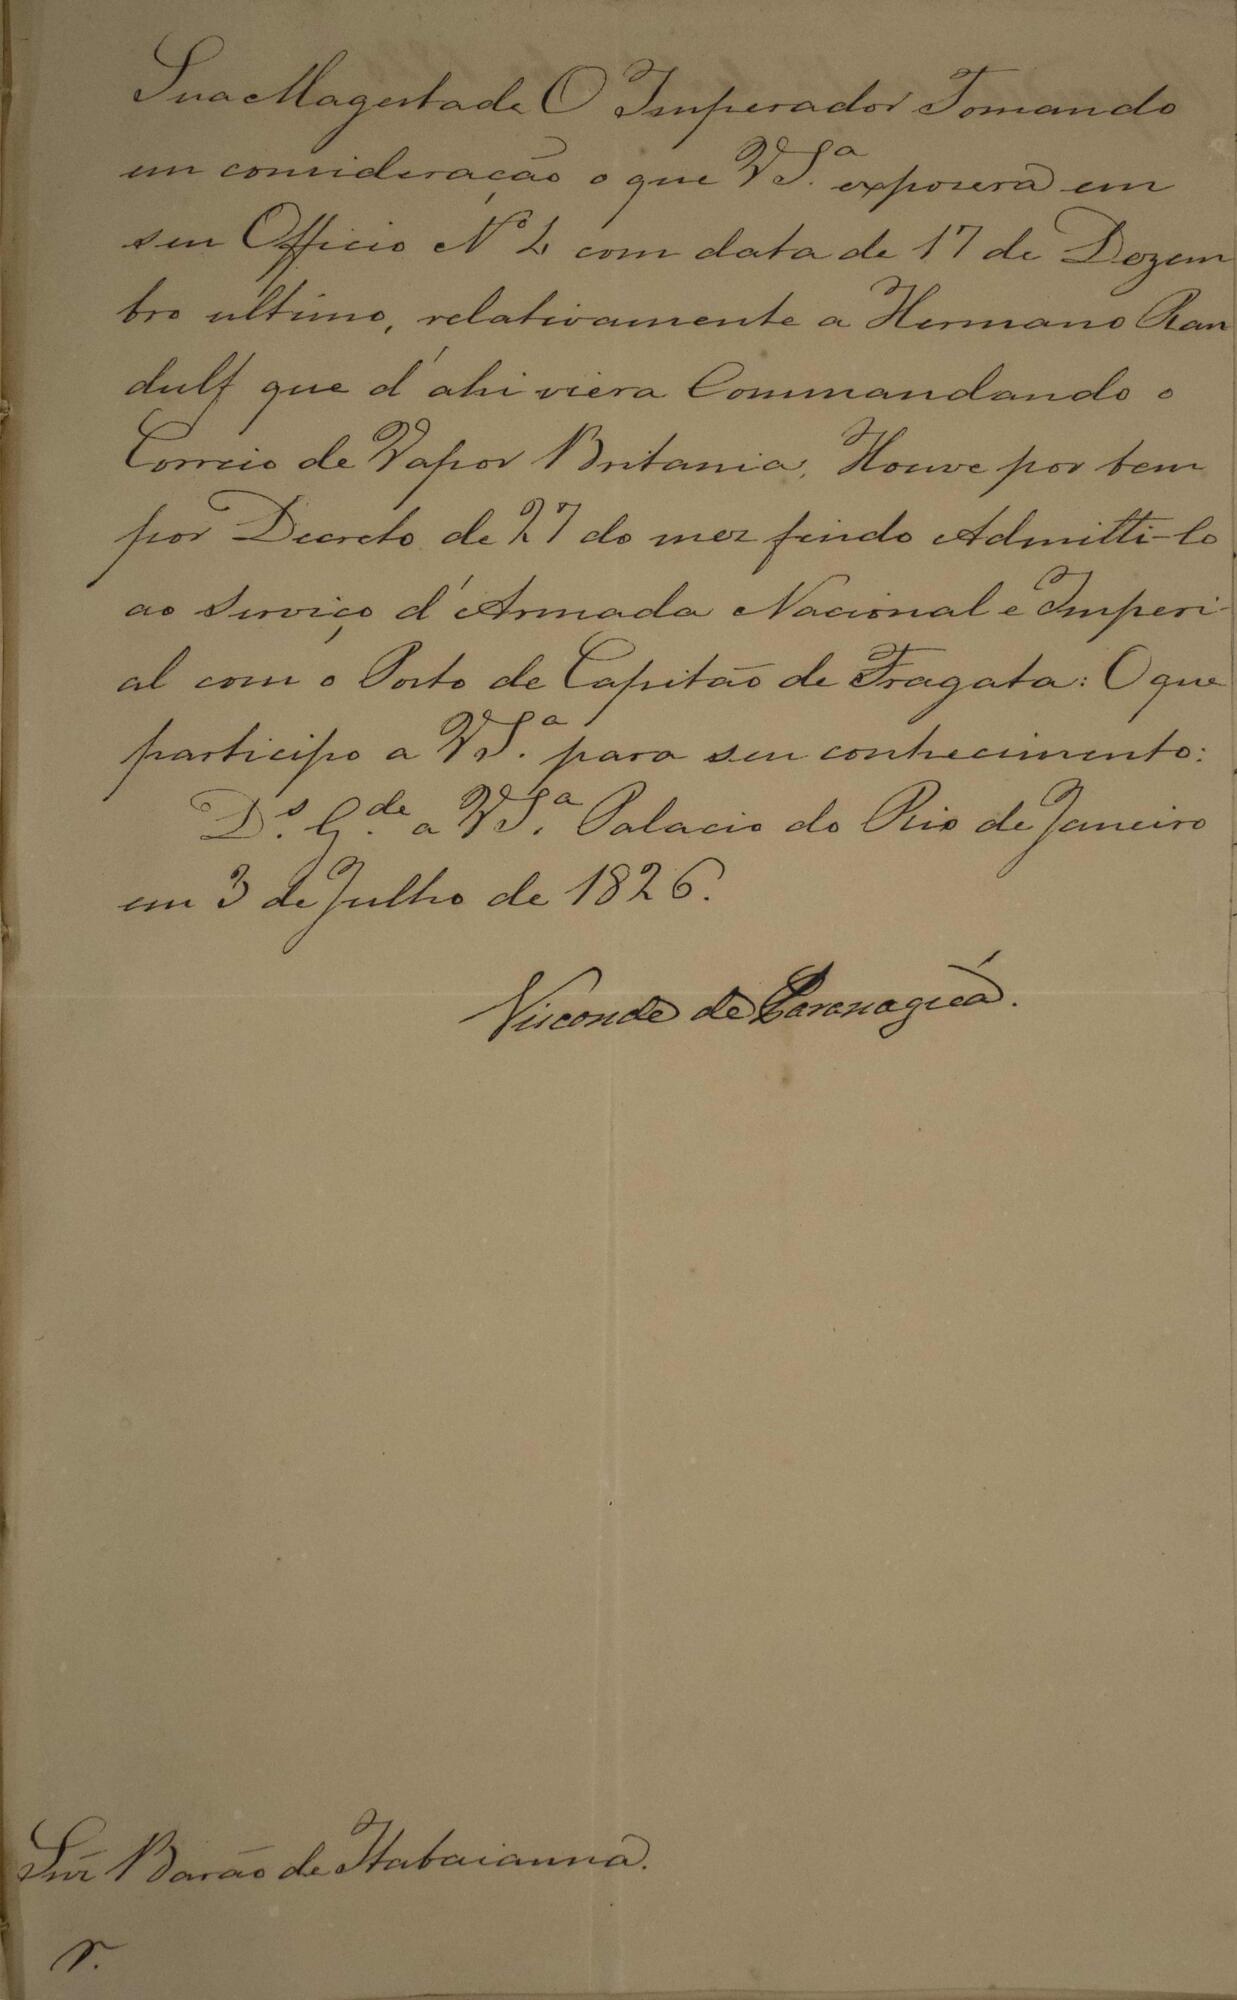 Sua Magestade O Imperador Tomando
em consideração o que V S.ª exposerá em
seu Officio Nº 4 com data de 17 de Dezem
bro ultimo, relativamente a Hermano Ran
dulf que d'ahi viera Commandando o
Correio de Vapor Britania, Houve por bem
por Decreto de 27 do mez findo Admitti-lo
ao serviço d'Armada Nacional e Imperi-
al com o Posto de Capitão de Fragata: O que
participo a V S.ª para seu conhecimento:
D.s G.de a V S.ª Palacio do Rio de Janeiro
em 3 de Julho de 1826.
Visconde de Paranaguá.
Snr̃ Barão de Itabaianna.